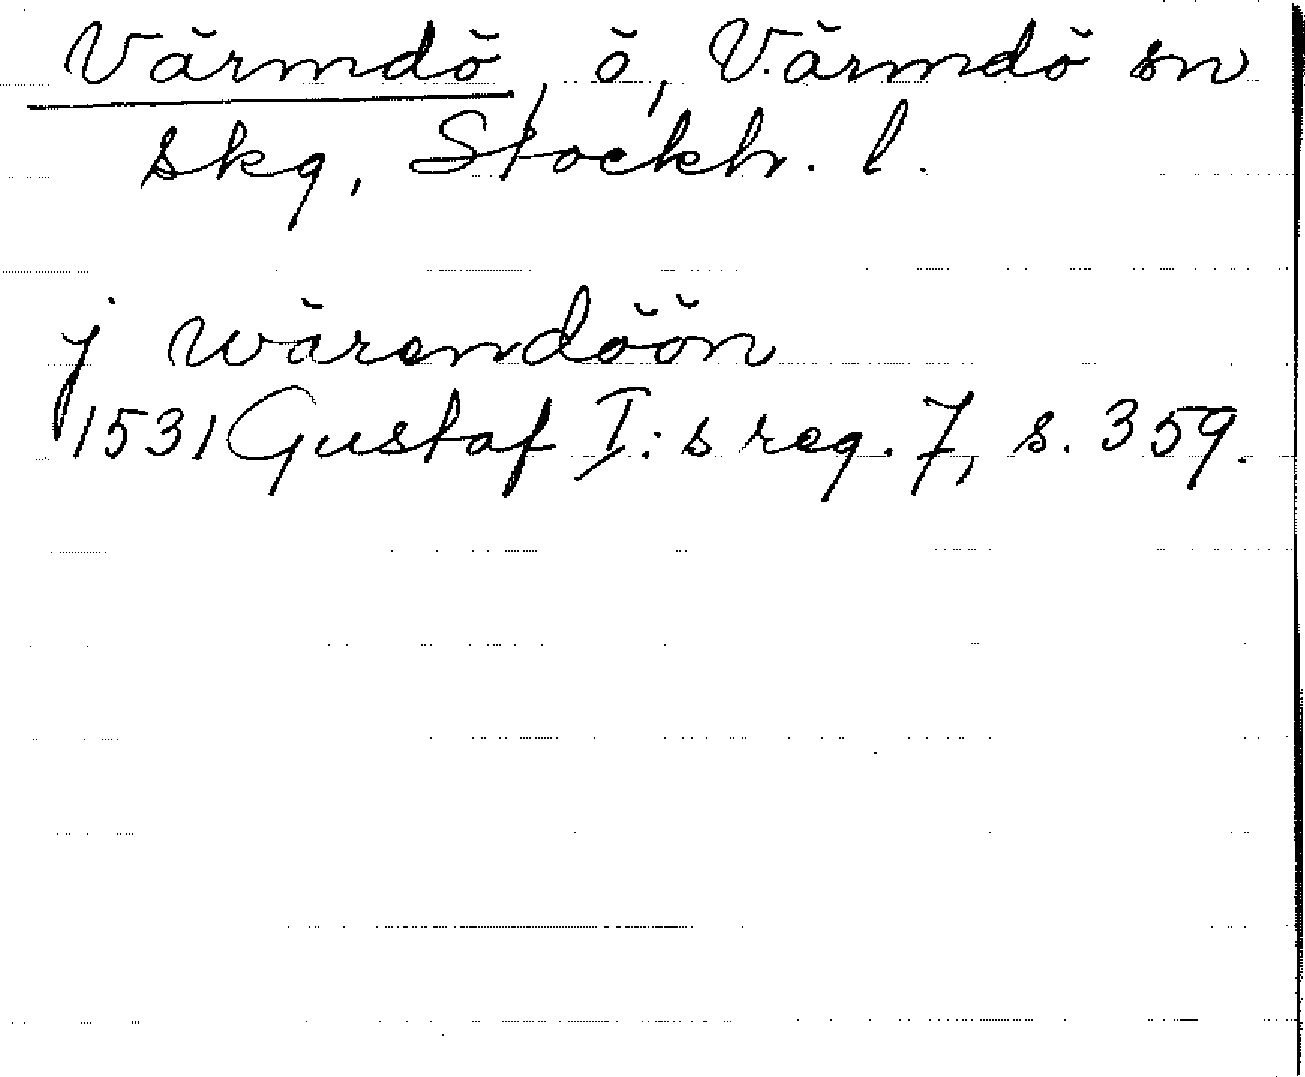 Värmdö, ö, Värmdö sn
skg, Stockh. l.
j wärendöön
1531 Gustaf I:s reg. 7, s. 359.